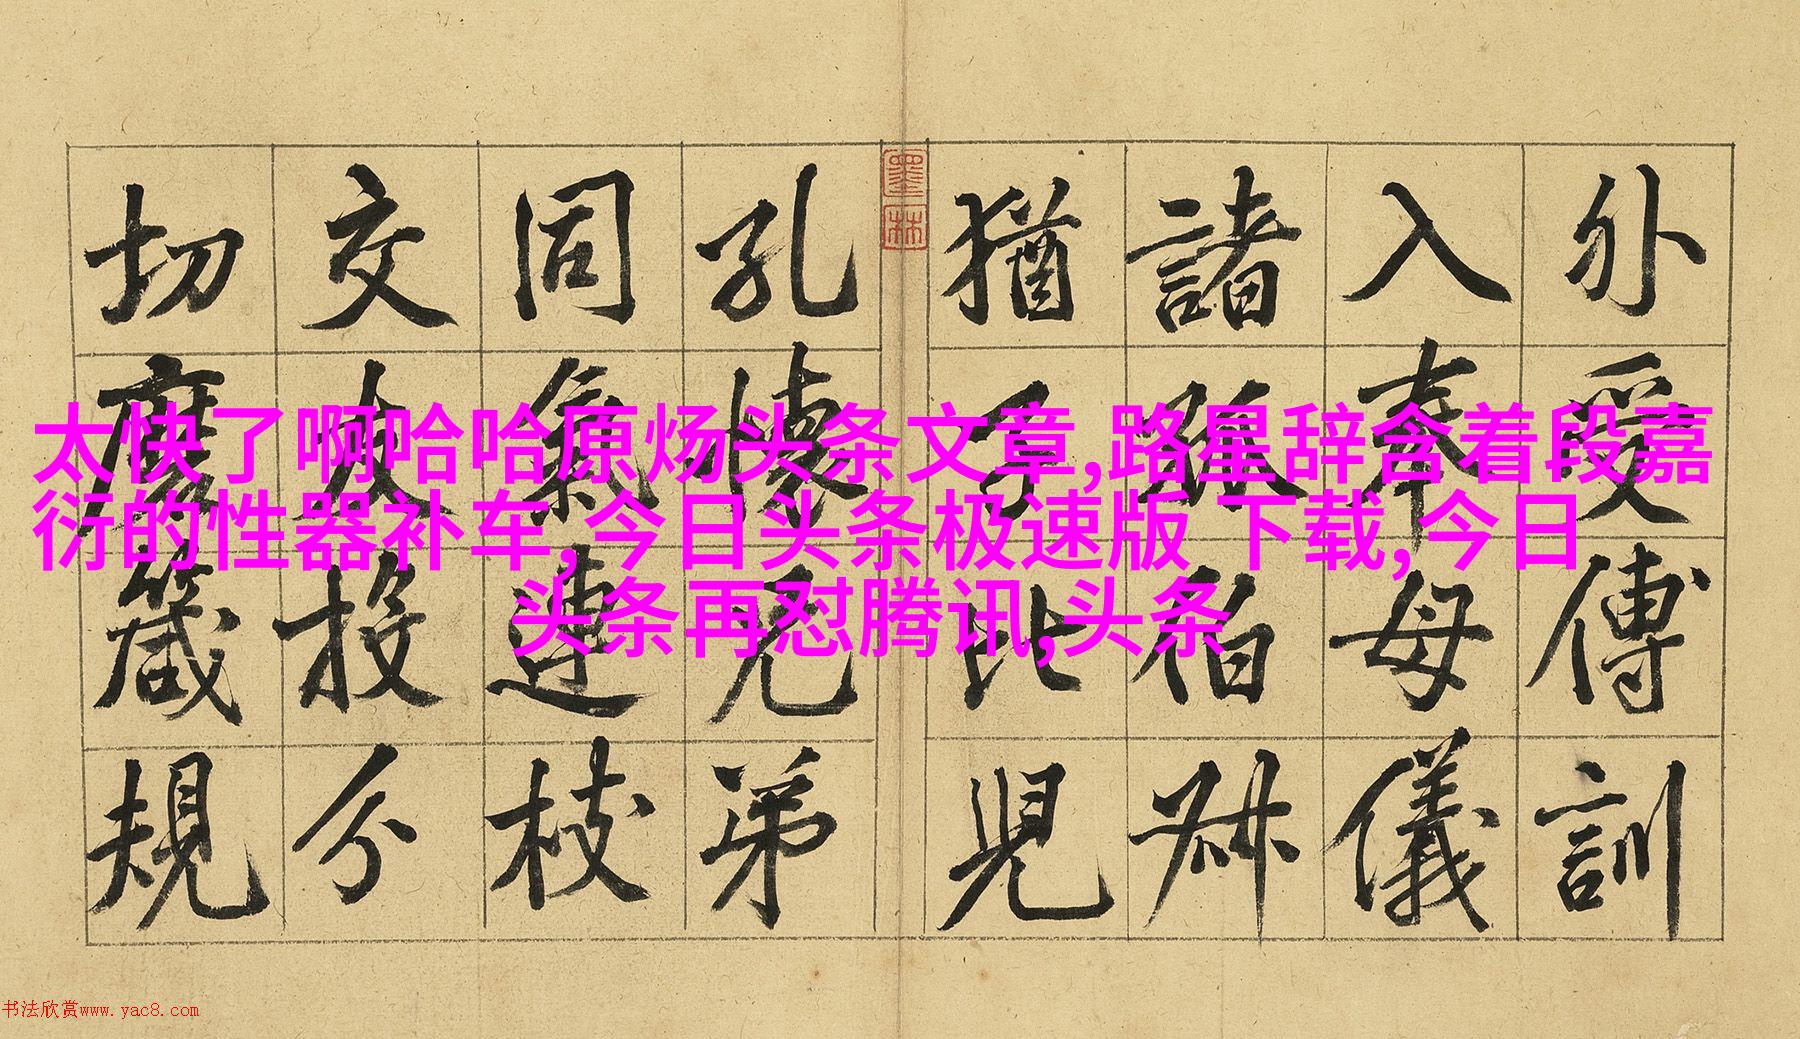 外受傅訓
入奉母儀
諸姑伯叔
猶子比兒
孔懷兄弟
同氣連枝
交友投分
切磨箴規
墨林
太快了啊哈哈哈原炀头条文章,路星辞含着段嘉
衍的性器补车,今日头条极速版 下载,今日
头条再怼腾讯,头条
书法欣赏www.yac8.com